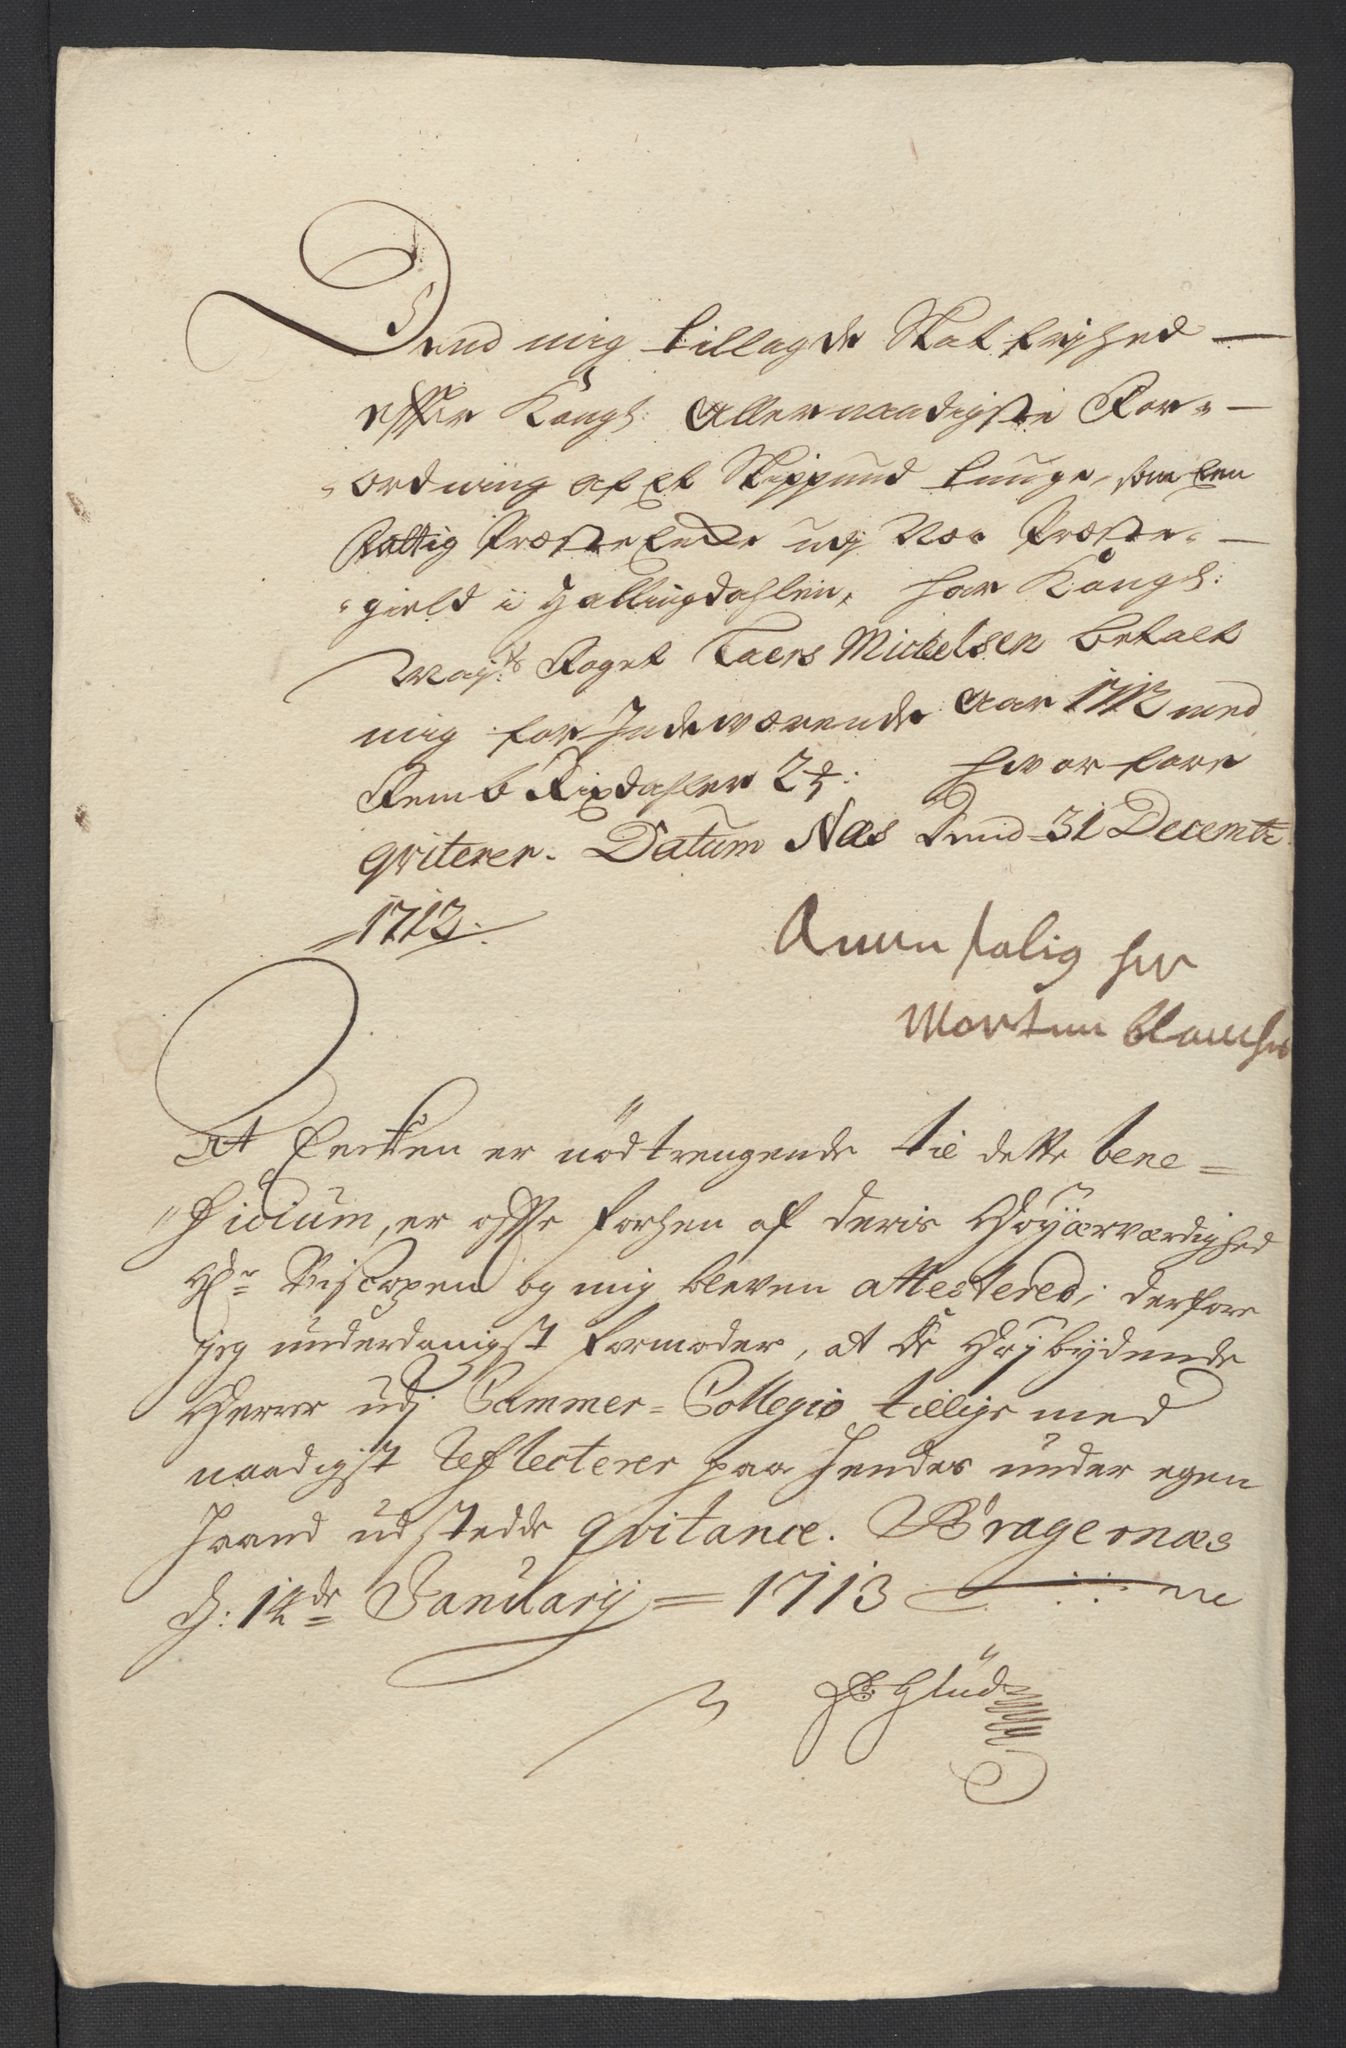 Dend mig tillagde Skatfrihed
effter Kongl: Allernaadigste For-
ordning af Et Skippund tunge, som Een
Fattig Præste Encke udj Næs Præste-
gield i Hallingdahlen, har Kongl:
Mayts Foget Laers Michelsen betalt
mig for Indeværende Aar 1712 med
Femb Rixdahler 2 : hvorfore
qviterer. Datum Næs Dend 31 Decembr
1712.
Anen salig her
Morten
At Encken er nödtrengende til dette bene=
ficium, er offte forhen af deris Höyærværdighed
Hr Biscopen og mig bleven attestered; derfore
jeg underdanigst formoder, at de Höybydende
Herrer udj Cammer=Collegio tillige med
naadigst reflecterer paa Hendes under egen
Haand udstedde qvitance. Bragernæs
d: 12de Januarij = 1713
Glud